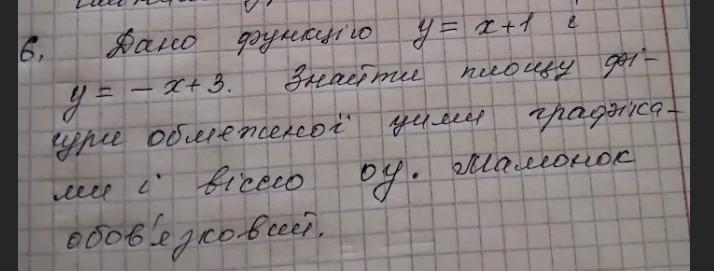 6. Дано функцію y = x+1 і
y = -x+3. Знайти площу фі-
гури обмеженої цими графіка-
ми і віссю oy. Малюнок
обов'язковий.